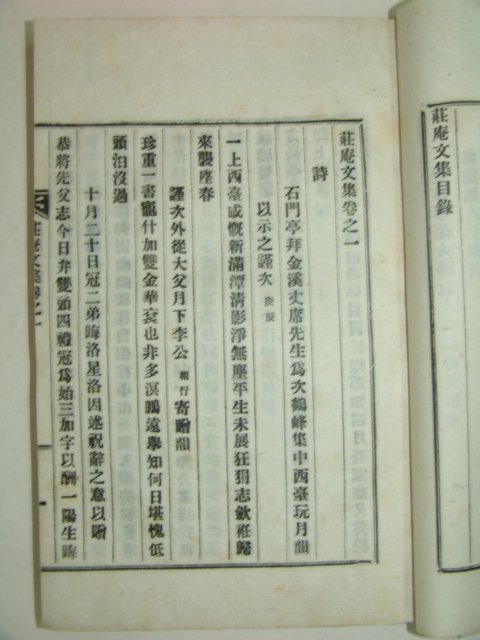 莊庵文集目錄
莊庵文集卷之一
詩
石門亭拜金溪丈席先生爲次鶴峰集中西臺玩月韻
以示之謹次 庚辰
一上西臺感慨新滿潭清影淨無塵平生未展狂狷志斂袵歸
來襲座春
謹次外從大父月下李公 相行 寄贈韻
珍重一書寵什加雙金華袞也非多溟鵬遠擧知何日堪愧低
頭汨沒過
十月二十日冠二弟晦洛星洛因述祝辭之意以贈
恭將先父志今日弁雙頭四禮冠爲始三加字以酬一陽生晦
莊庵文集卷之一